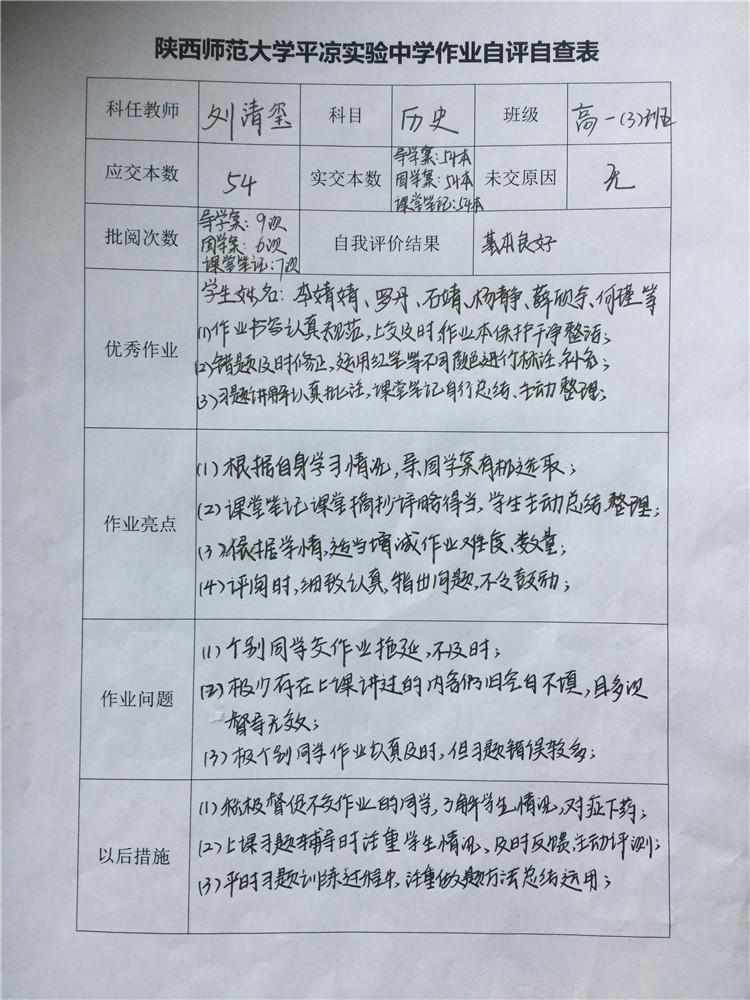 陕西师范大学平凉实验中学作业自评自查表
科任教师 刘清玺 科目 历史 班级 高一(3)班
应交本数 54 实交本数 导学案:54本 固学案:54本 课堂笔记:54本 未交原因 无
批阅次数 导学案:9次 固学案:6次 课堂笔记:7次 自我评价结果 基本良好
优秀作业
学生姓名:李婧婧、罗丹、石婧、杨静、薛欣奈、何瑾等
(1)作业书写认真规范,上交及时,作业本保护干净整洁;
(2)错题及时修正,运用红笔等不同颜色进行标注,补充;
(3)习题讲解认真批注,课堂笔记自行总结、主动整理;
作业亮点
(1)根据自身学习情况,导固学案有机选取;
(2)课堂笔记课堂摘抄详略得当,学生主动总结,整理;
(3)依据学情,适当增减作业难度、数量;
(4)评阅时,细致认真,指出问题,不乏鼓励;
作业问题
(1)个别同学交作业拖延,不及时;
(2)极少存在上课讲过的内容仍旧空白不填,且多次
督导无效;
(3)极个别同学作业认真及时,但习题错误较多;
以后措施
(1)积极督促不交作业的同学,了解学生情况,对症下药;
(2)上课习题辅导时注重学生情况、及时反馈,主动评测;
(3)平时习题训练过程中,注重做题方法总结运用;